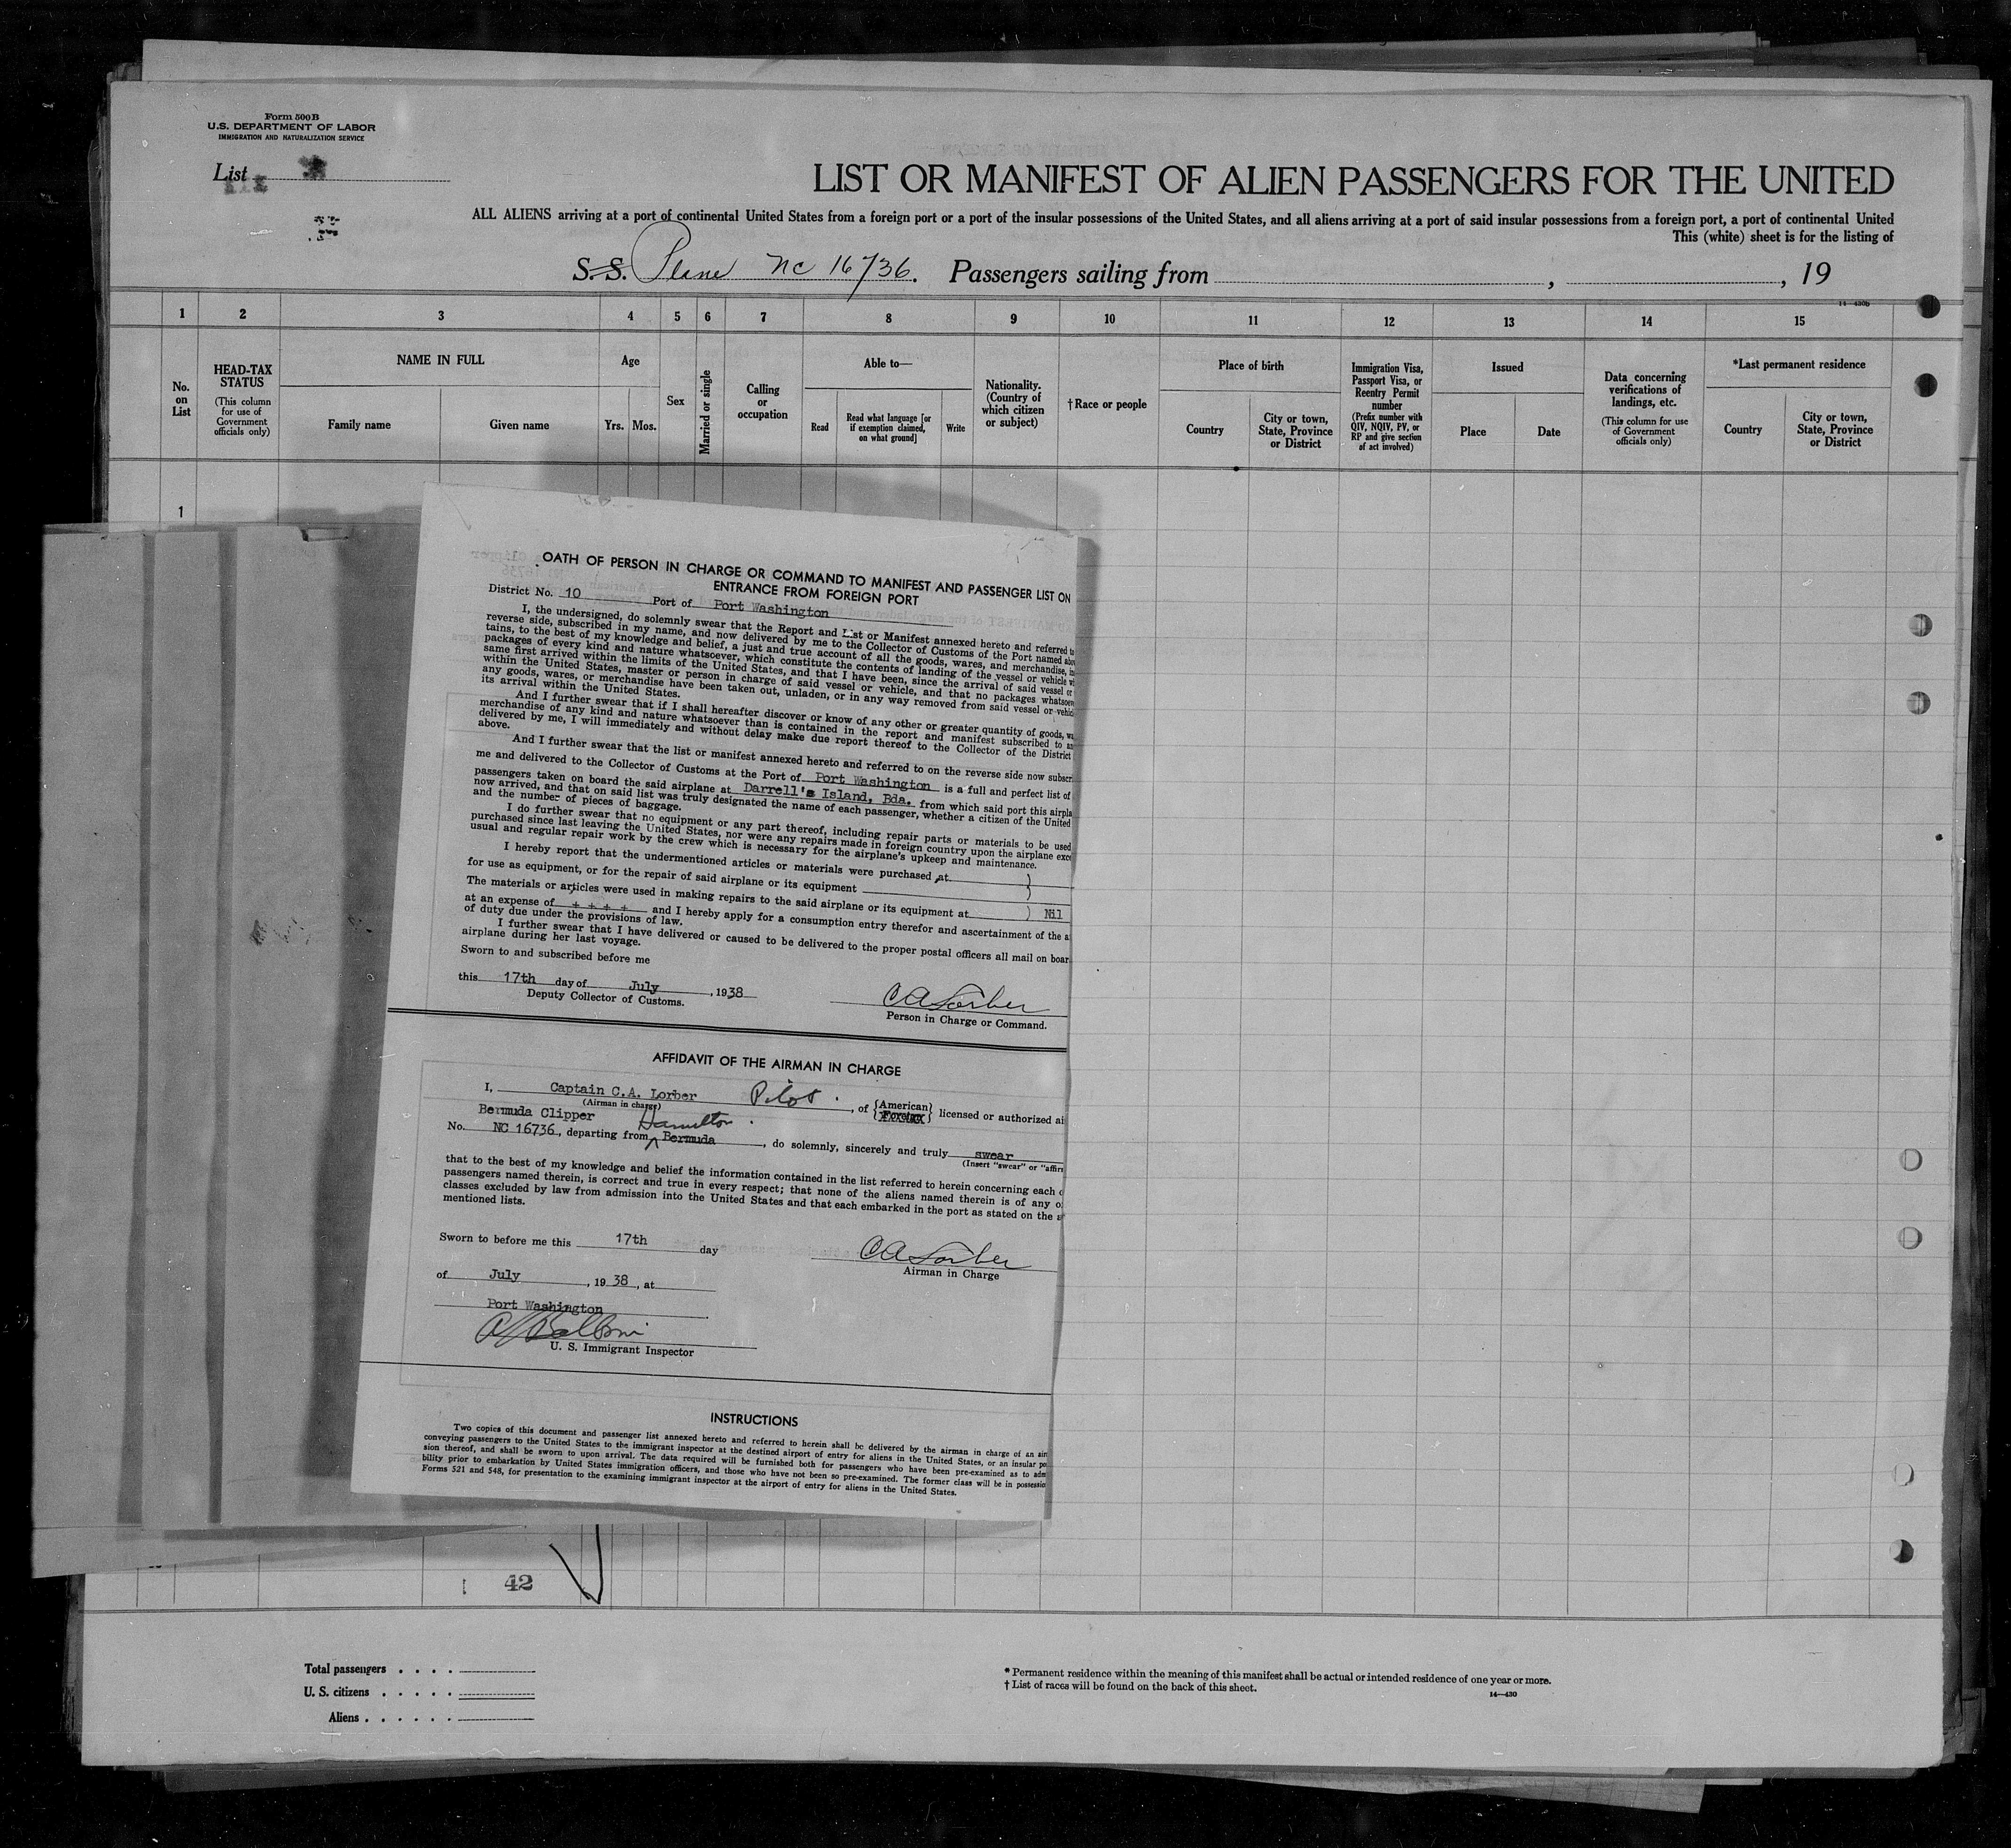 Form 500B
U.S. DEPARTMENT OF LABOR
IMMIGRATION AND NATURALIZATION SERVICE
List
LIST OR MANIFEST OF ALIEN PASSENGERS FOR THE UNITED
ALL ALIENS arriving at a port of continental United States from a foreign port or a port of the insular possessions of the United States, and all aliens arriving at a port of said insular possessions from a foreign port, a port of continental United
This (white) sheet is for the listing of
S.S. Plane NC 16736. Passengers sailing from , , 19
14—430b
1 2 3 4 5 6 7 8 9 10 11 12 13 14 15
No. on List
HEAD-TAX STATUS
(This column for use of Government officials only)
NAME IN FULL
Family name
Given name
Age
Yrs. Mos.
Sex
Married or single
Calling or occupation
Able to—
Read
Read what language [or if exemption claimed, on what ground]
Write
Nationality. (Country of which citizen or subject)
†Race or people
Place of birth
Country
City or town, State, Province or District
Immigration Visa, Passport Visa, or Reentry Permit number
(Prefix number with QIV, NQIV, PV, or RP and give section of act involved)
Issued
Place
Date
Data concerning verifications of landings, etc.
(This column for use of Government officials only)
*Last permanent residence
Country
City or town, State, Province or District
1
OATH OF PERSON IN CHARGE OR COMMAND TO MANIFEST AND PASSENGER LIST ON
ENTRANCE FROM FOREIGN PORT
District No. 10 Port of Port Washington
I, the undersigned, do solemnly swear that the Report and List or Manifest annexed hereto and referred to
reverse side, subscribed in my name, and now delivered by me to the Collector of Customs of the Port named
tains, to the best of my knowledge and belief, a just and true account of all the goods, wares, and merchandise,
packages of every kind and nature whatsoever, which constitute the contents of landing of the vessel or vehicle
same first arrived within the limits of the United States, and that I have been, since the arrival of said vessel or
within the United States, master or person in charge of said vessel or vehicle, and that no packages
any goods, wares, or merchandise have been taken out, unladen, or in any way removed from said vessel or
its arrival within the United States.
And I further swear that if I shall hereafter discover or know of any other or greater quantity of goods,
merchandise of any kind and nature whatsoever than is contained in the report and manifest subscribed to
delivered by me, I will immediately and without delay make due report thereof to the Collector of the District
above.
And I further swear that the list or manifest annexed hereto and referred to on the reverse side now
me and delivered to the Collector of Customs at the Port of Port Washington is a full and perfect list of
passengers taken on board the said airplane at Darrell's Island, Bda. from which said port this
now arrived, and that on said list was truly designated the name of each passenger, whether a citizen of the United
and the number of pieces of baggage.
I do further swear that no equipment or any part thereof, including repair parts or materials to be used
purchased since last leaving the United States, nor were any repairs made in foreign country upon the airplane
usual and regular repair work by the crew which is necessary for the airplane's upkeep and maintenance.
I hereby report that the undermentioned articles or materials were purchased at )
for use as equipment, or for the repair of said airplane or its equipment )
The materials or articles were used in making repairs to the said airplane or its equipment at ) Nil
at an expense of + + + + and I hereby apply for a consumption entry therefor and ascertainment of the
of duty due under the provisions of law.
I further swear that I have delivered or caused to be delivered to the proper postal officers all mail on
airplane during her last voyage.
Sworn to and subscribed before me
this 17th day of July , 1938
Deputy Collector of Customs.
C A Lorber
Person in Charge or Command.
AFFIDAVIT OF THE AIRMAN IN CHARGE
I, Captain C.A. Lorber Pilot. , of {American} {Foreign} licensed or authorized
(Airman in charge)
Bermuda Clipper Hamilton.
No. NC 16736, departing from Bermuda , do solemnly, sincerely and truly swear
(Insert "swear" or
that to the best of my knowledge and belief the information contained in the list referred to herein concerning each
passengers named therein, is correct and true in every respect; that none of the aliens named therein is of any
classes excluded by law from admission into the United States and that each embarked in the port as stated on the
mentioned lists.
Sworn to before me this 17th day
C A Lorber
Airman in Charge
of July , 19 38, at
Port Washington
U. S. Immigrant Inspector
INSTRUCTIONS
Two copies of this document and passenger list annexed hereto and referred to herein shall be delivered by the airman in charge of an
conveying passengers to the United States to the immigrant inspector at the destined airport of entry for aliens in the United States, or an insular
sion thereof, and shall be sworn to upon arrival. The data required will be furnished both for passengers who have been pre-examined as to
bility prior to embarkation by United States immigration officers, and those who have not been so pre-examined. The former class will be in
Forms 521 and 548, for presentation to the examining immigrant inspector at the airport of entry for aliens in the United States.
42
Total passengers . . . .
U. S. citizens . . . . .
Aliens . . . . . .
* Permanent residence within the meaning of this manifest shall be actual or intended residence of one year or more.
† List of races will be found on the back of this sheet.
14—430